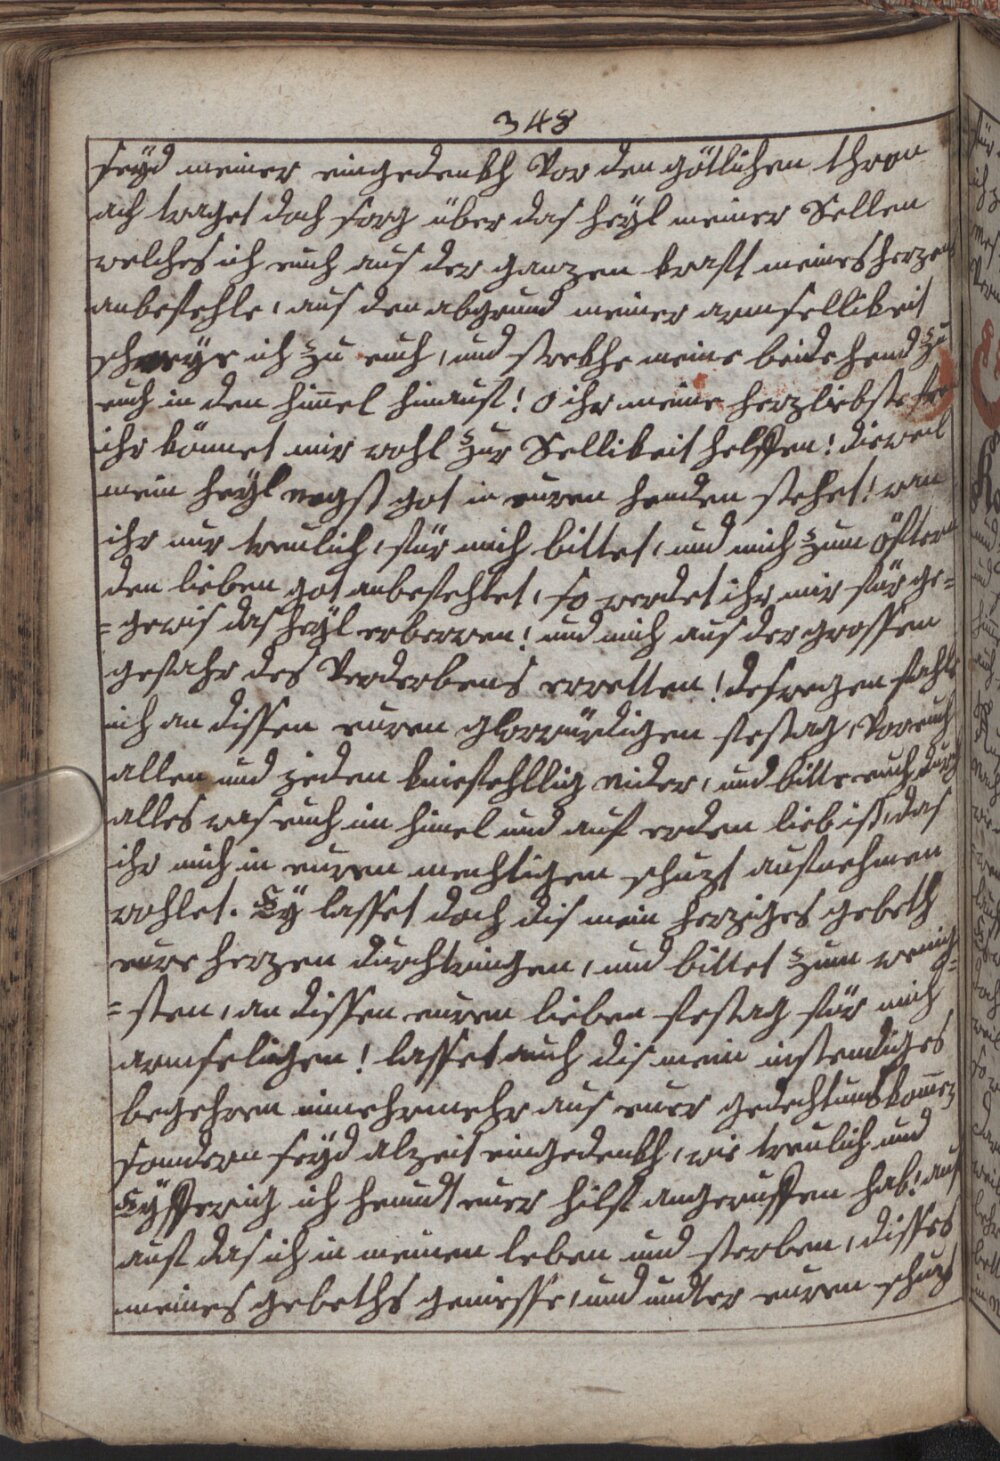 348
seyd meiner eingedenkh Vor den götlichen thron
ach traget doch sorg über das heyl meiner Sellen
welches ich euch aus der ganzen kraft meines herzens
anbefehle, aus den abgrund meiner armsellikeit
schreye ich zu euch, und strekhe meine beide hend zu
euch in den himel hinauf! O ihr meine herzliebste
ihr könnet mir wohl zur Sellikeit helffen! dieweil
mein heyl negst got in euren henden stehet! wan
ihr nur treulich, für mich bittet, und mich zum öftern
den lieben got anbefehlet, so werdet ihr mir für ge=
=gewis das heyl erberren! und mich aus der grossen
gefahr des Verderbens erretten! deswegen fahle
ich an dissen euren glorwürdigen festag, Vor euch
allen und jeden kniefehllig nider, und bitte euch durch
alles was euch im himel und auf erden lieb ist, das
ihr mich in euren mechtigen schuzt aufnehmen
wohlet. Ey lasset doch dis mein herziges gebeth
eure herzen durchtringen, und bittet zum wenig=
=sten, an dissen euren lieben festag für mich
armseligen! lasset auch dis mein instendiges
begehren nimehrmehr aus euer gedechtnus komen
sondern seyd alzeit eingedenkh, wie treulich und
Eyfferig ich heundt euer hilf angeruffen hab! auf
auf das ich in meinen leben und sterben, disses
meines gebeths geniesse, und undter euren schuz